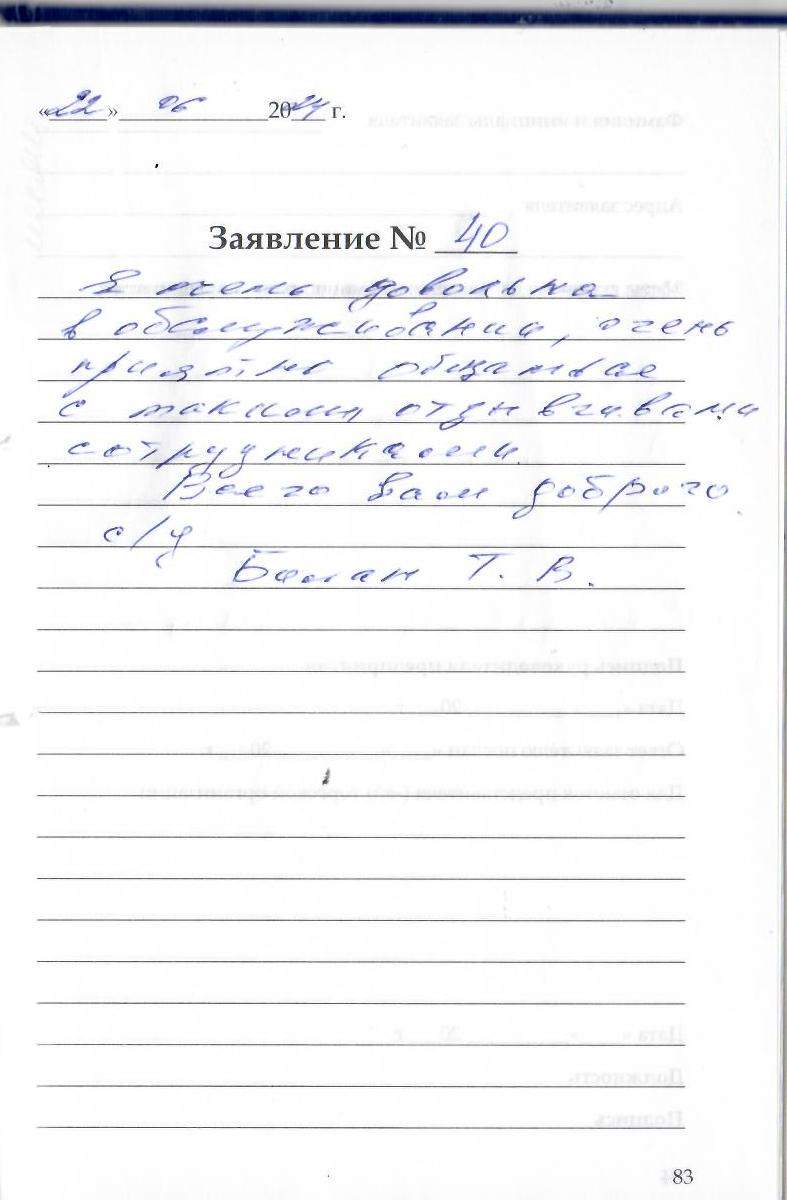 «22» 06 2024 г.
Заявление № 40
Я очень довольна
в обслуживании, очень
приятно общаться
с такими отзывчивами
сотрудниками.
Всего вам доброго
с/у
Балан Т. В.
83